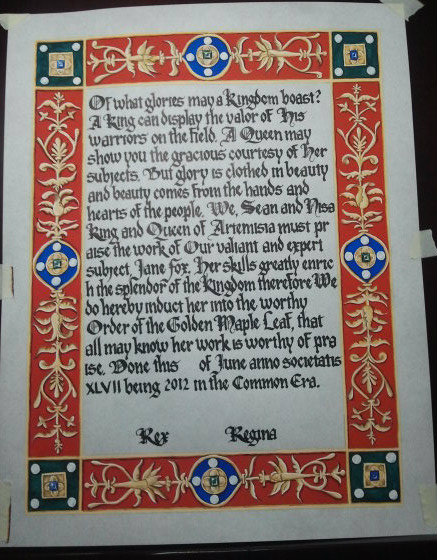 Of what glories may a Kingdom boast?
A King can display the valor of His
warriors on the field. A Queen may
show you the gracious courtesy of Her
subjects. But glory is clothed in beauty
and beauty comes from the hands and
hearts of the people. We, Sean and Nisa
King and Queen of Artemisia must pr
aise the work of Our valiant and expert
subject, Jane Fox. Her skills greatly enric
h the splendor of the Kingdom therefore We
do hereby induct her into the worthy
Order of the Golden Maple Leaf, that
all may know her work is worthy of pra
ise. Done this of June anno societatis
XLVII being 2012 in the Common Era.
Rex Regina